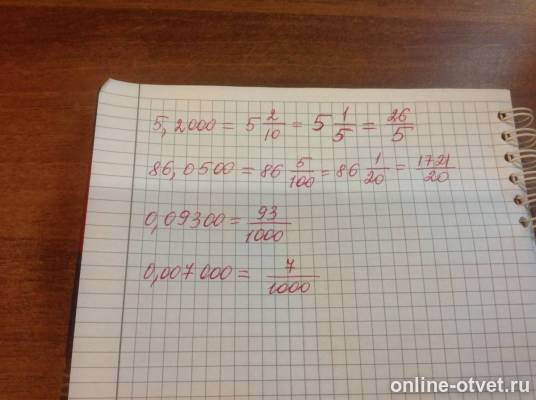 5,2000 = 5 2/10 = 5 1/5 = 26/5
86,0500 = 86 5/100 = 86 1/20 = 1721/20
0,09300 = 93/1000
0,007000 = 7/1000
online-otvet.ru